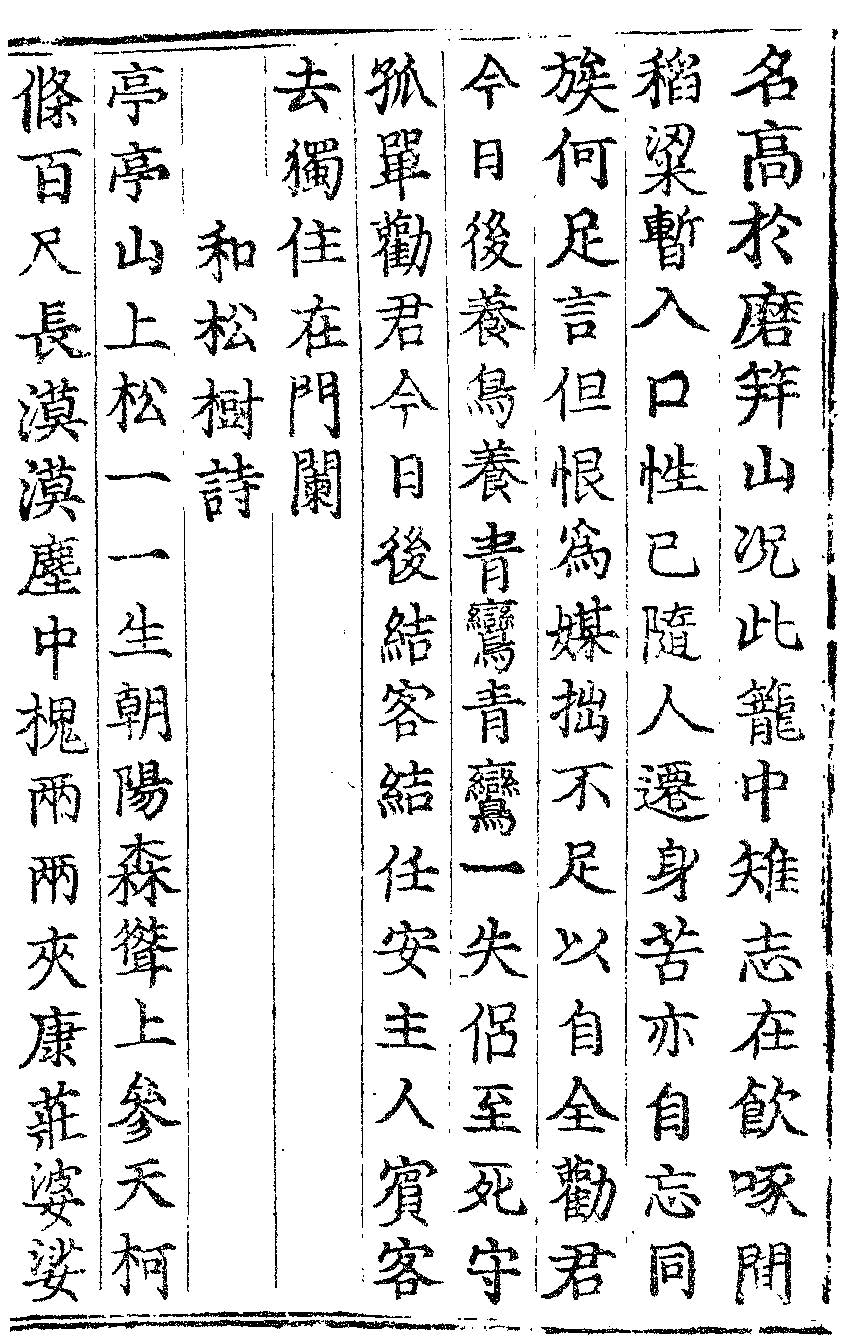 名高於磨笄山况此籠中雉志在飲啄間
稻粱暫入口性已隨人遷身苦亦自忘同
族何足言但恨為媒拙不足以自全勸君
今日後養鳥養青鸞青鸞一失侣至死守
孤單勸君今日後結客結任安主人賓客
去獨住在門闌
和松樹詩
亭亭山上松一一生朝陽森聳上參天柯
條百尺長漠漠塵中槐兩兩夾康莊婆娑